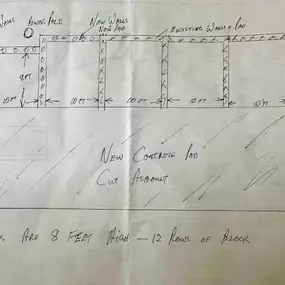 WALLS POWER POLE
NEW WALLS
NEW PAD
EXISTING WALLS + PAD
9FT
10 FT
10 FT
10 FT
10 FT
10 FT
NEW CONCRETE PAD
CUT ASPHALT
ARE 8 FEET HIGH — 12 ROWS OF BLOCK